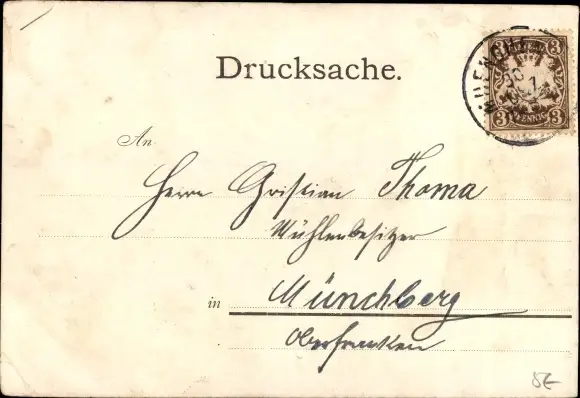 Drucksache.
3 3
3 PFENNIG 3
An
Herrn Cristian Thoma
Mühlenbesitzer
in Münchberg
Oberfranken